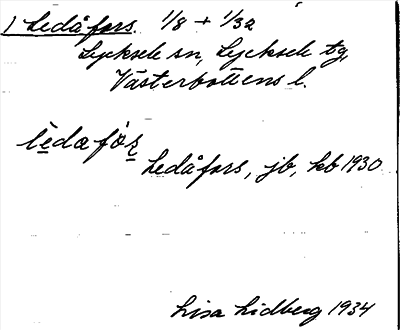 1 Ledåfors. 1/8 + 1/32
Lycksele sn, Lycksele tg,
Västerbottens l.
lèdaför
Ledåfors, jb, kb 1930
Lisa Lidberg 1934